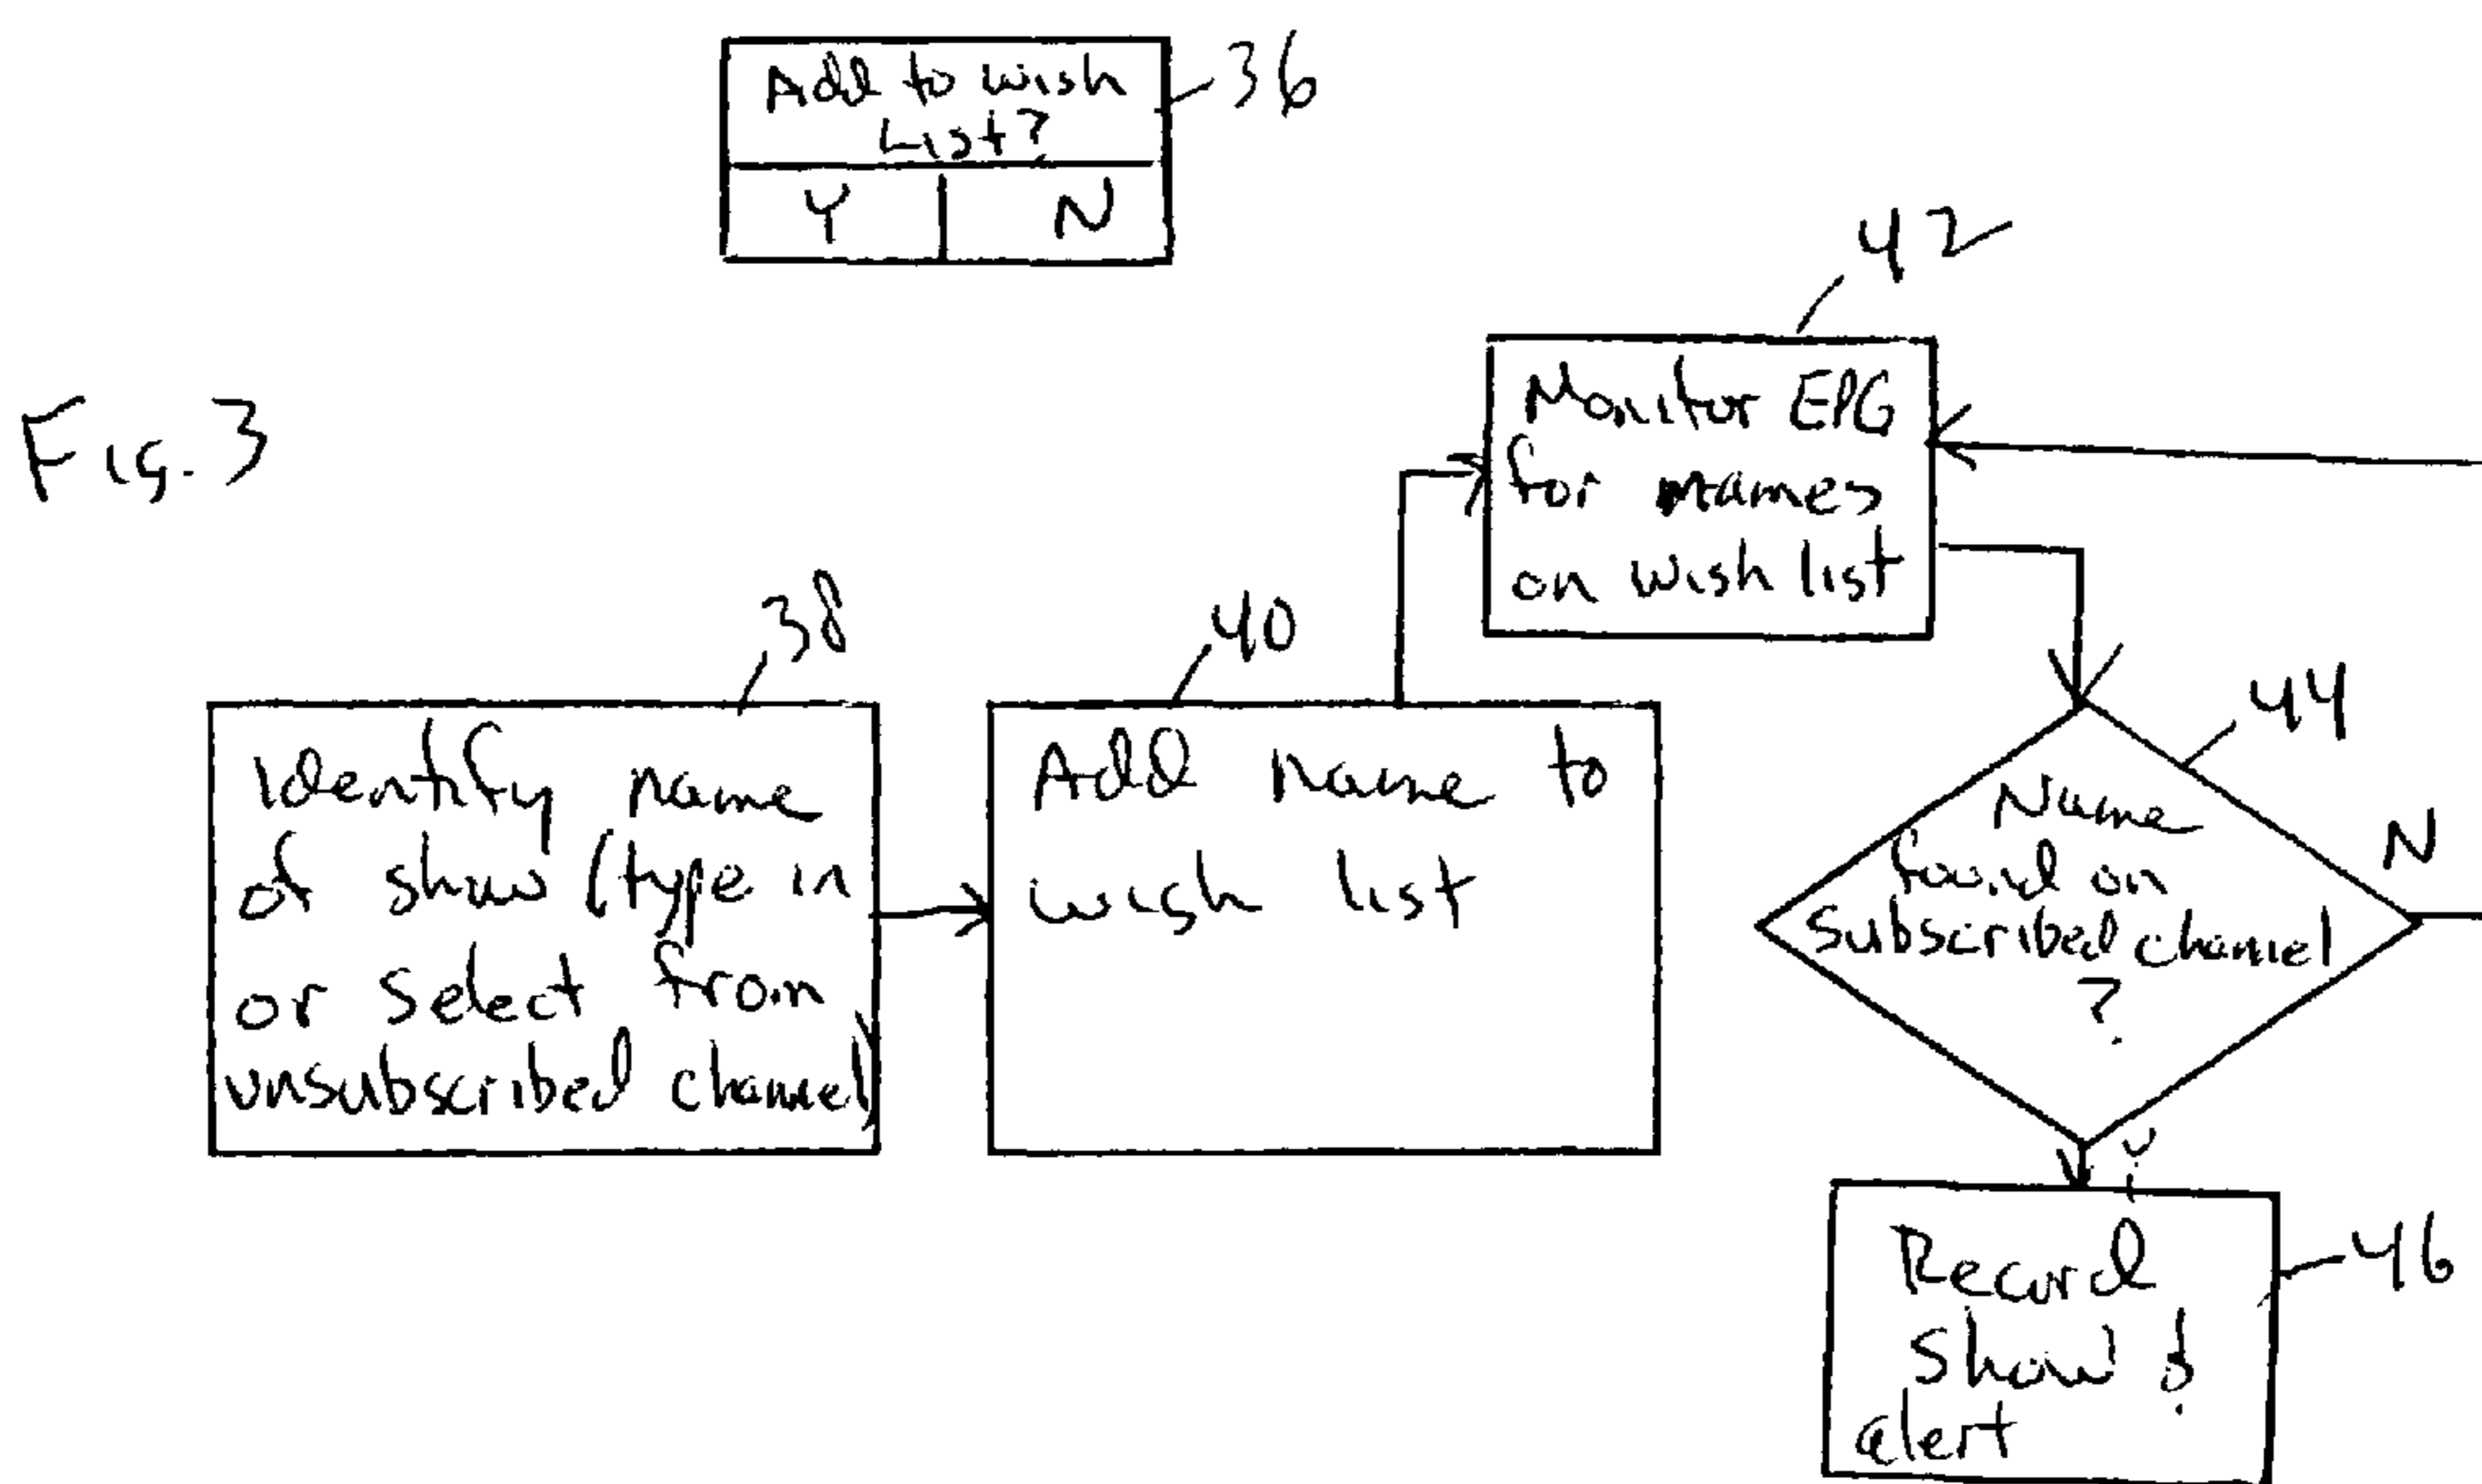 Add to wish
List?
Y N
36
Fig. 3
42
Monitor EPG
for names
on wish list
38
Identify name
of show (type in
or select from
unsubscribed channel)
40
Add name to
wish list
44
Name
found on
subscribed channel
?
N
Y
46
Record
Show &
alert